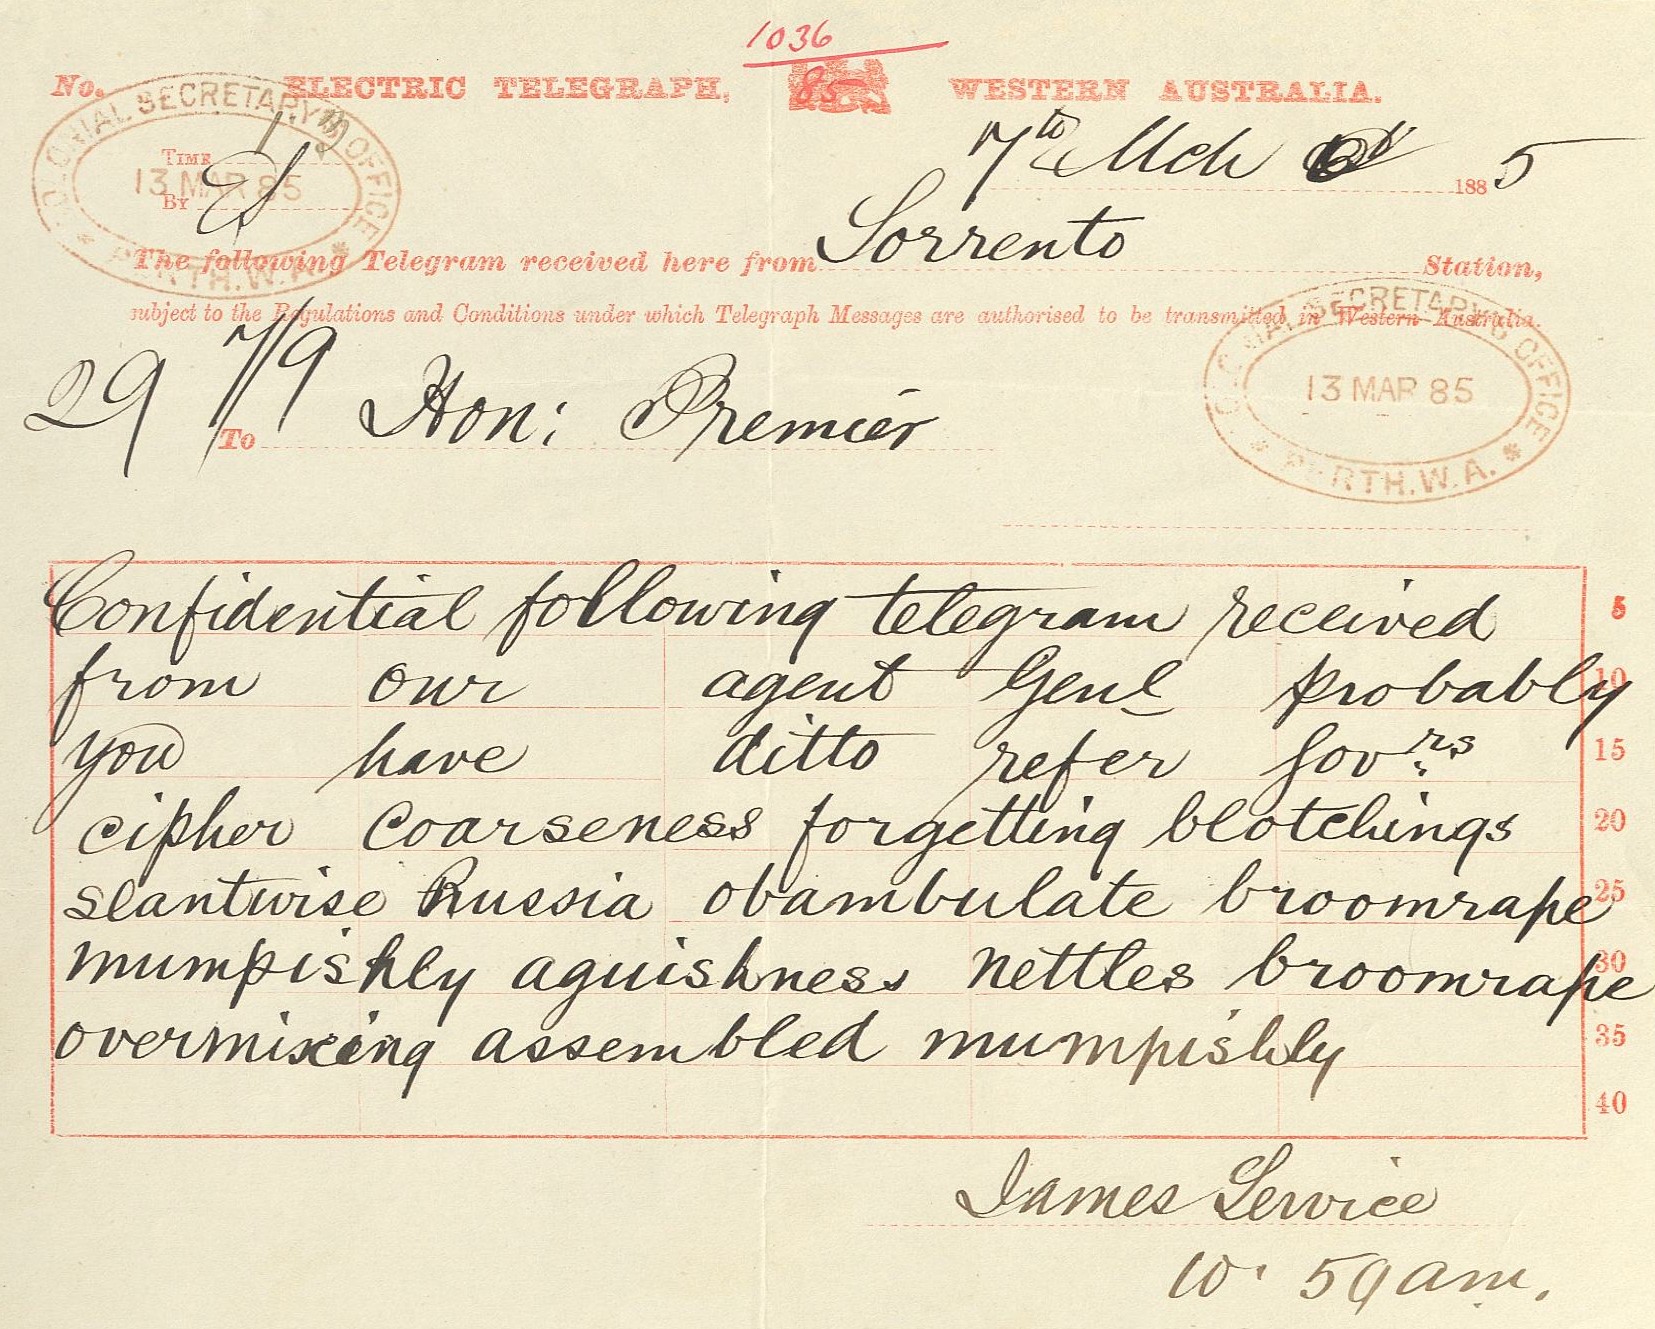 1036
85
No. ELECTRIC TELEGRAPH, WESTERN AUSTRALIA.
COLONIAL SECRETARY'S OFFICE
13 MAR 85
PERTH.W.A.
TIME
BY
7th Mch 1885
The following Telegram received here from Sorrento Station,
subject to the Regulations and Conditions under which Telegraph Messages are authorised to be transmitted in Western Australia.
COLONIAL SECRETARY'S OFFICE
13 MAR 85
PERTH.W.A.
29 7/9
To Hon: Premier
Confidential following telegram received 5
from our agent Genl probably 10
you have ditto refer Govrs 15
cipher coarseness forgetting blotchings 20
slantwise Russia obambulate broomrape 25
mumpishly aguishness nettles broomrape 30
overmixing assembled mumpishly 35
40
James Service
10. 59 am.